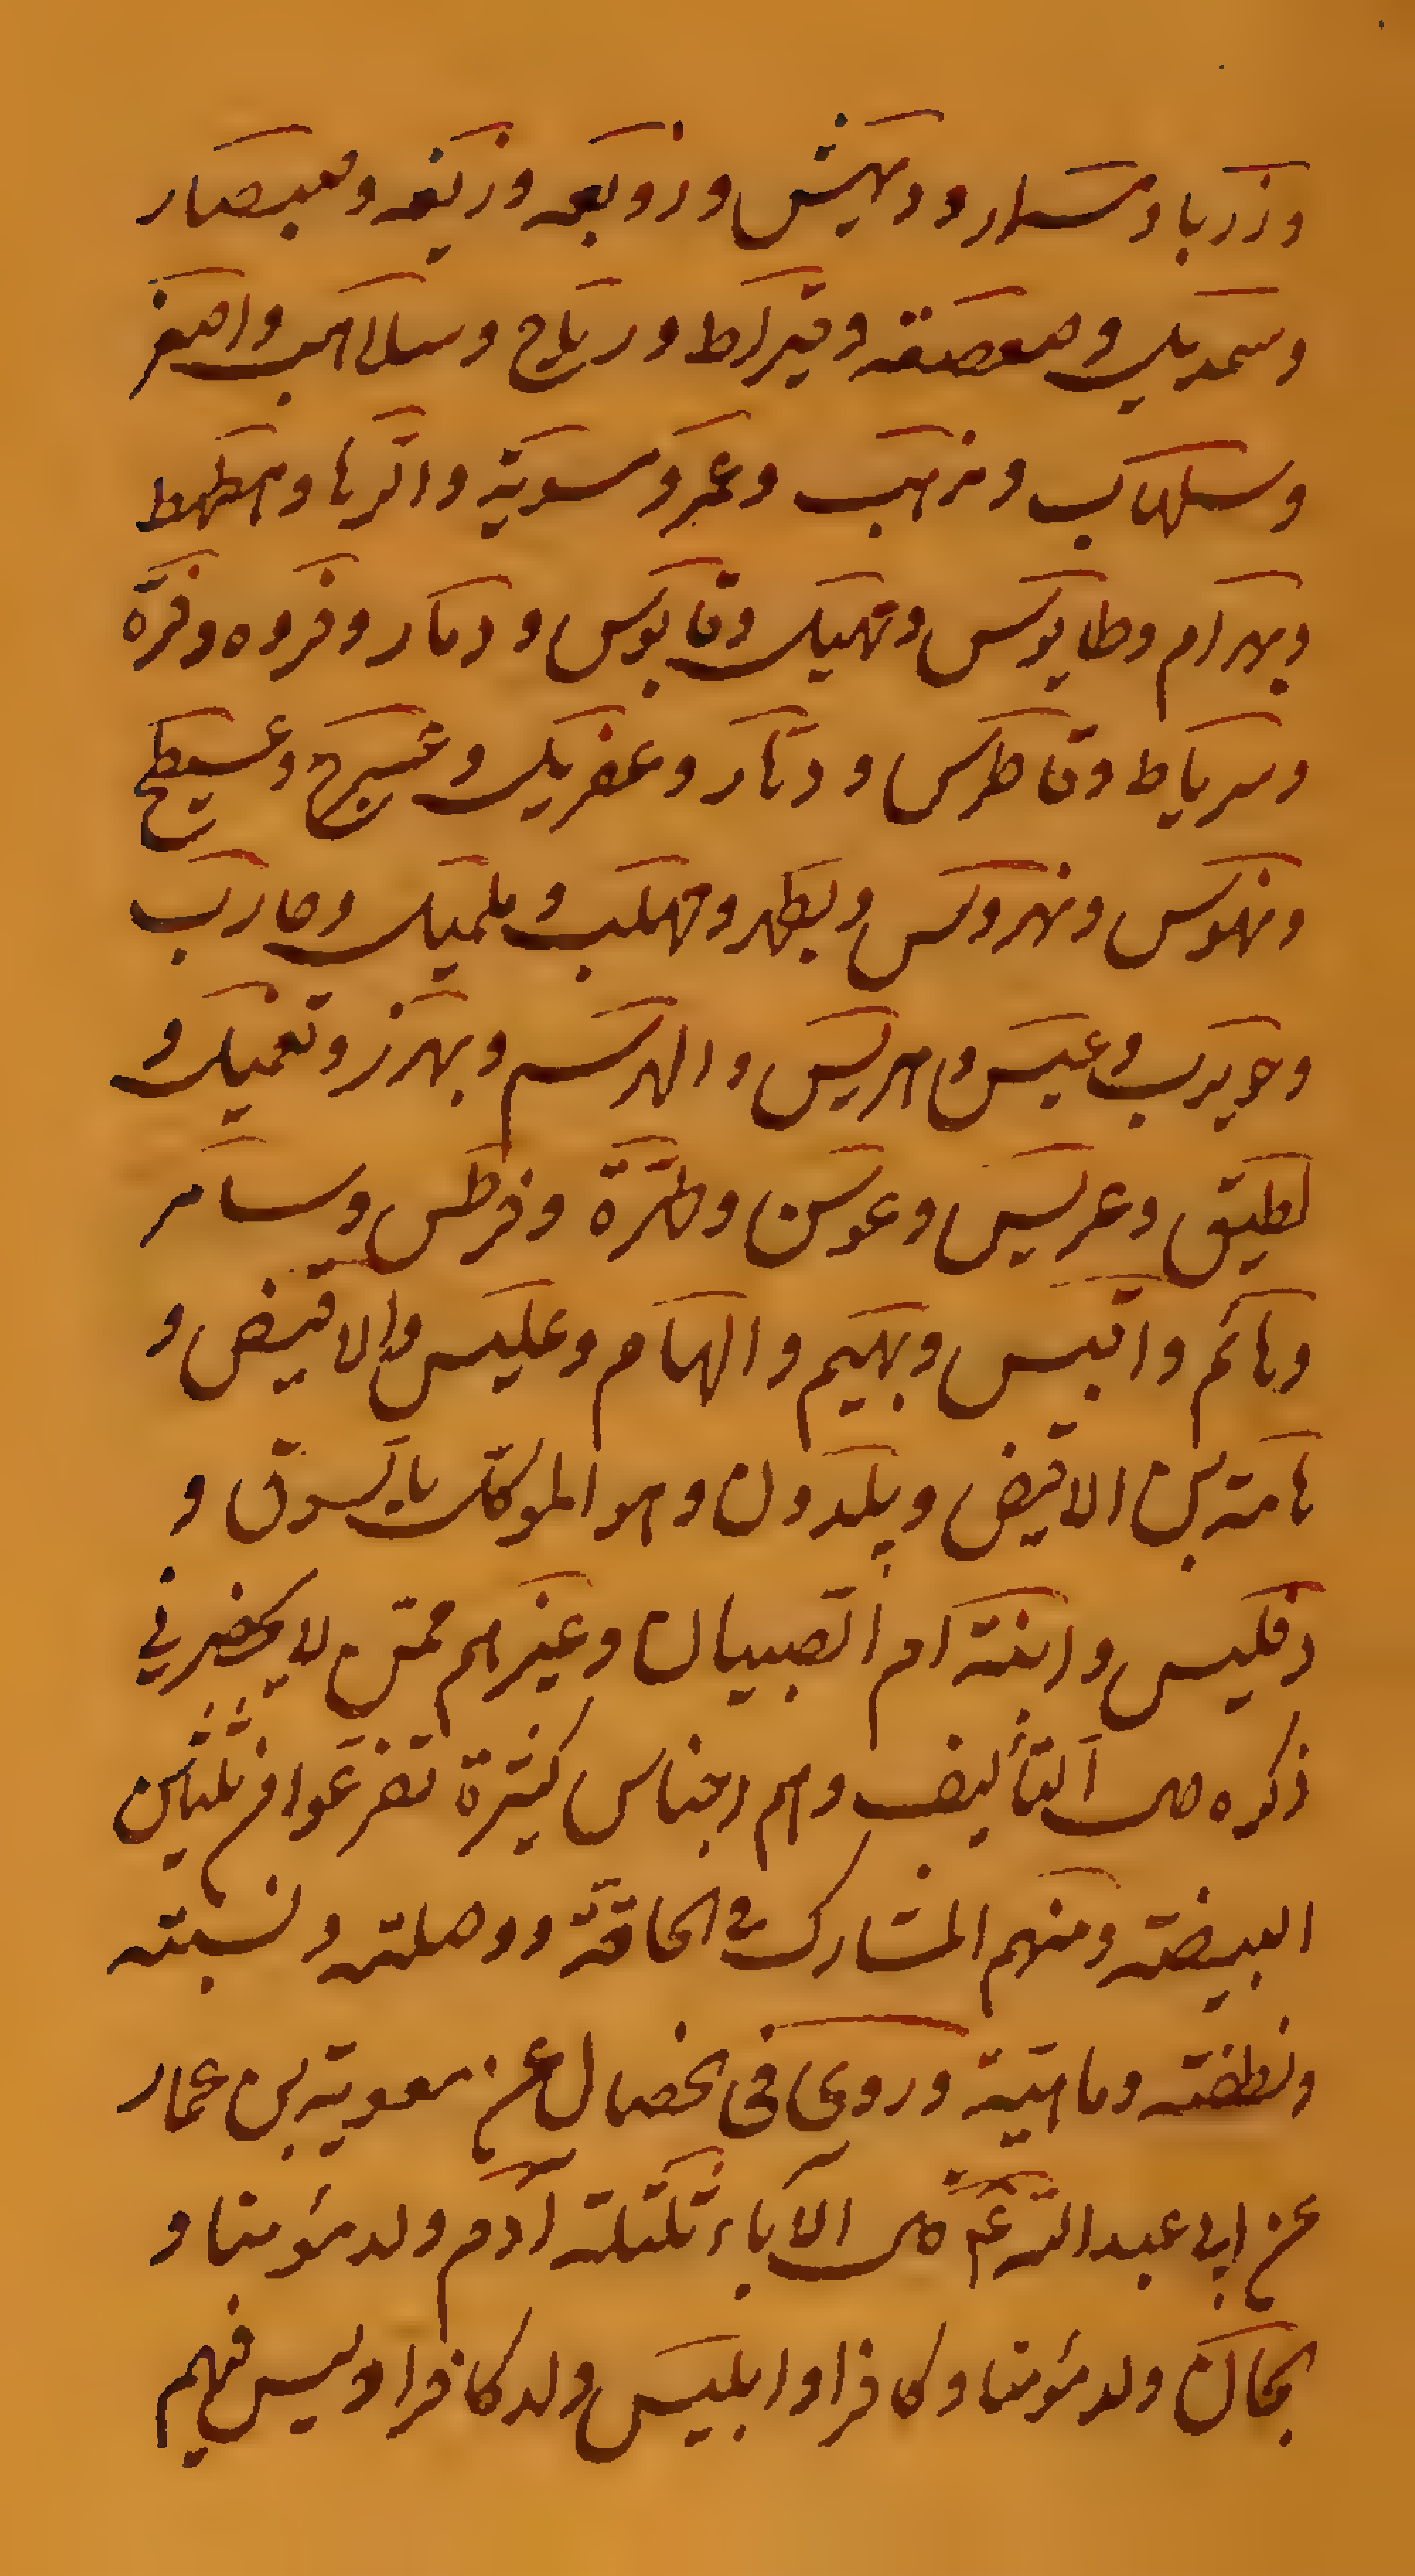 وزرباد مسرار ودهيش وزوبعه وزيعه وصبصار
وسمديك وصعصعه وقيراط ورياح وسلاهب واصعر
وسلهاب ومزهب وعمرو سوية واترها وهطهط
وبهرام وطايوس وتهيك وقابوس ودمار وفروه وفرّة
وسرياط وقاطرس ودنار وعفريك وعيسرج وعسيطح
ونهوس ونهروس وبطهر ومهلب وبلميك وصارب
وجويرب وعيس وامريس والهرسم وبهرز وتعنيك و
لطيق وعريس وعوسن وطمرّة وفرطس وسامر
وهائم واتبس وبهيم والهام وعليس والاقيض و
هامة بن الاقيض وبلدون وهو الموكل بالسوق و
دقليس وابنة ام الصبيان وغيرهم ممن لا يحضرني
ذكره حال التأليف وهم اجناس كثيرة تفرعوا من ثلثين
البيضة ومنهم المشارك في الحاقة ووصلته ونسبته
ونطفته وماهيّة وروى في الخصال عن معوية بن عمار
عن ابي عبد الله ع قال الآباء ثلثة آدم ولد مؤمنا و
الجان ولد مؤمنا وكافرا وابليس ولد كافرا وليس فيهم